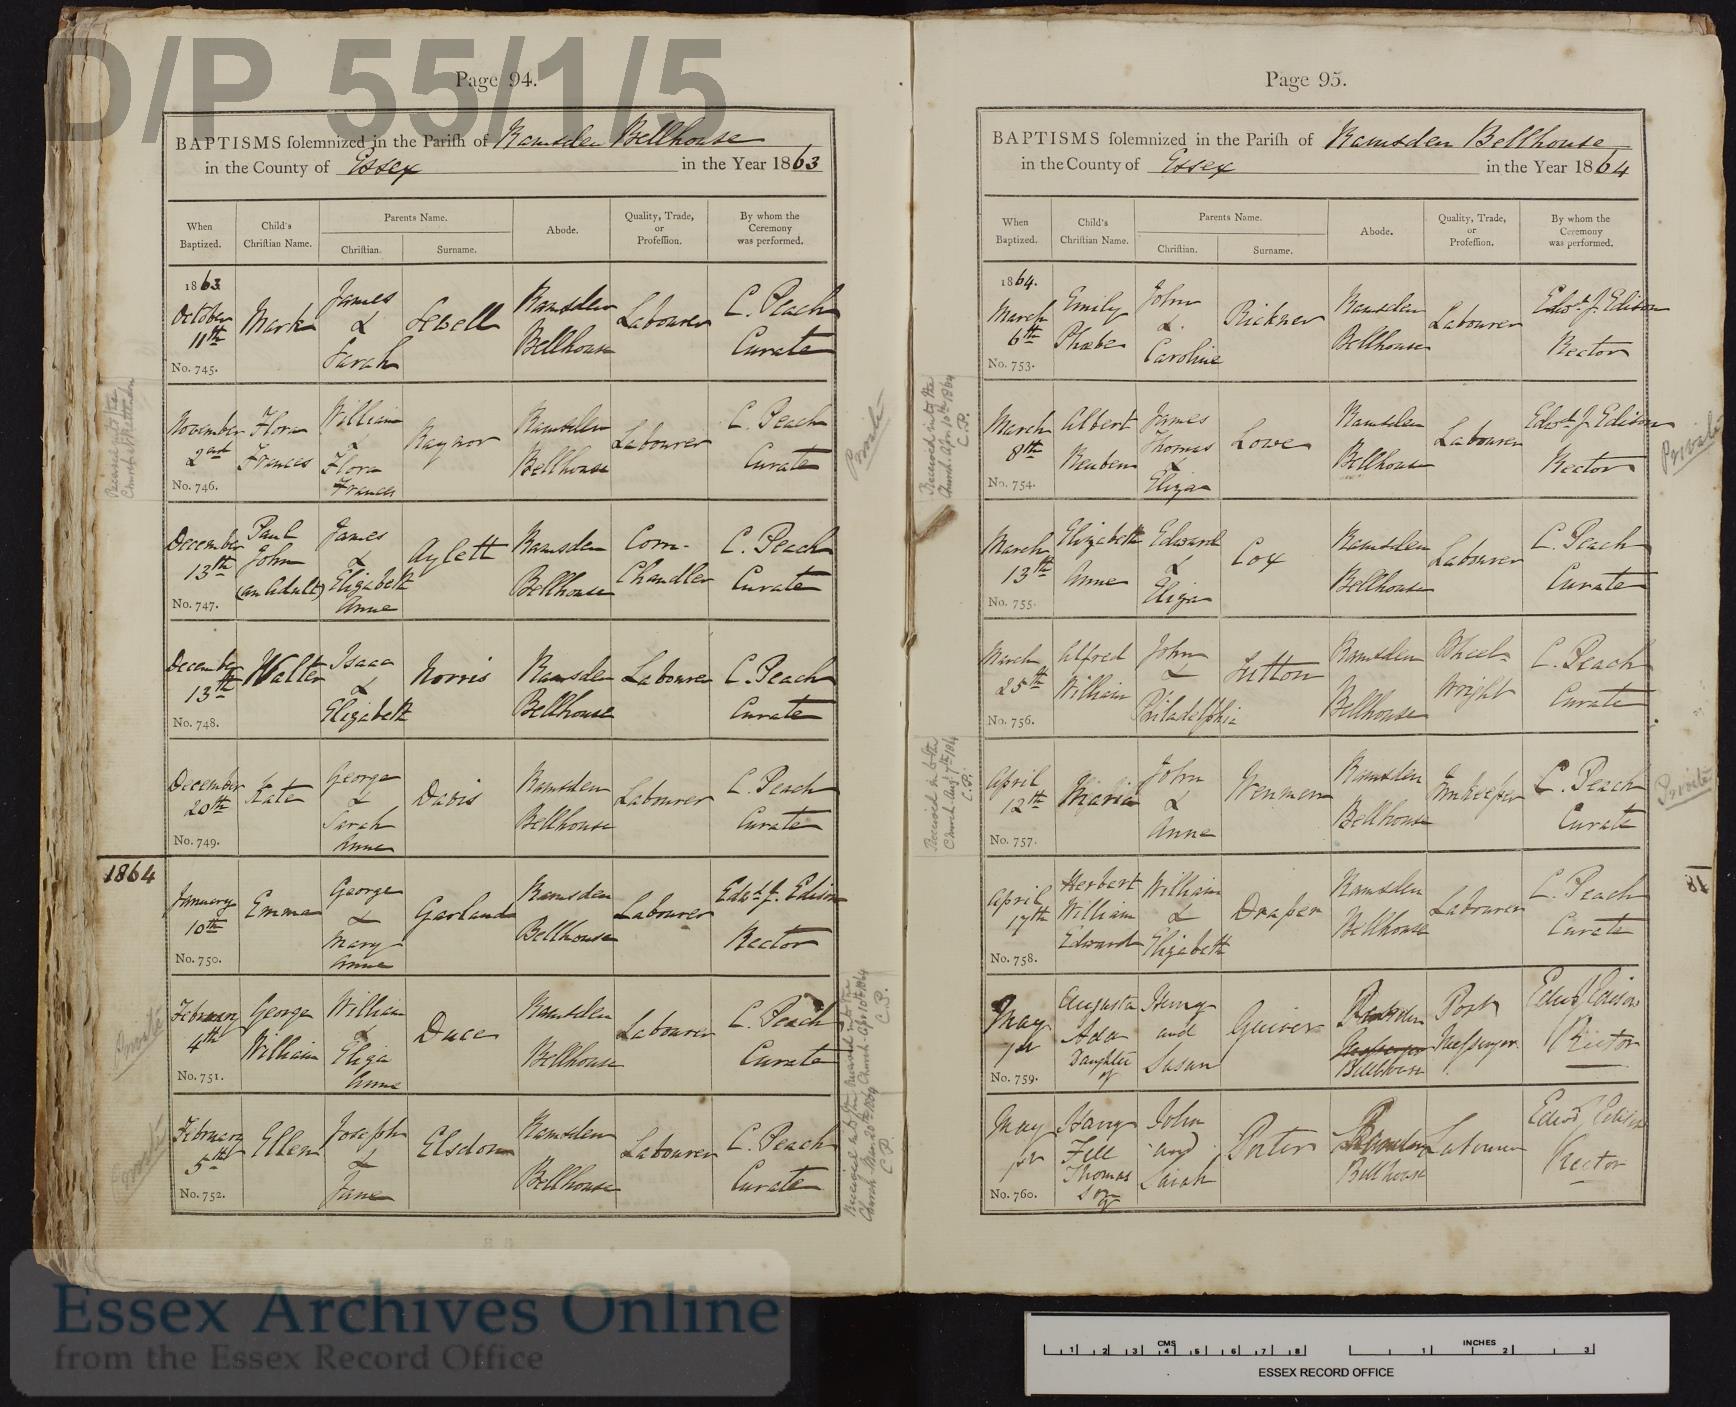 D/P 55/1/5
Page 94.
BAPTISMS solemnized in the Parish of Ramsden Bellhouse
in the County of Essex in the Year 1863
When Baptized. Child's Christian Name. Parents Name. Christian. Surname. Abode. Quality, Trade, or Profession. By whom the Ceremony was performed.
1863 October 11th No. 745. Mark James & Sarah Sewell Ramsden Bellhouse Labourer C. Peach Curate
November 2nd No. 746. Flora Frances William & Flora Frances Raynor Ramsden Bellhouse Labourer C. Peach Curate
Private
Received into the Church at
December 13th No. 747. Paul John (an Adult) James & Elizabeth Anne Aylett Ramsden Bellhouse Corn-Chandler C. Peach Curate
December 13th No. 748. Walter Isaac & Elizabeth Norris Ramsden Bellhouse Labourer C. Peach Curate
December 20th No. 749. Kate George & Sarah Anne Davis Ramsden Bellhouse Labourer C. Peach Curate
1864
January 10th No. 750. Emma George & Mary Anne Garland Ramsden Bellhouse Labourer Edwd. J. Edison Rector
February 4th No. 751. George William William & Eliza Anne Duce Ramsden Bellhouse Labourer C. Peach Curate
Private
Received into the Church Apr 10th 1864 C.P.
February 5th No. 752. Ellen Joseph & Jane Elsdon Ramsden Bellhouse Labourer C. Peach Curate
Private
Received into the Church Mar. 20th 1864 C.P.
Page 95.
BAPTISMS solemnized in the Parish of Ramsden Bellhouse
in the County of Essex in the Year 1864
When Baptized. Child's Christian Name. Parents Name. Christian. Surname. Abode. Quality, Trade, or Profession. By whom the Ceremony was performed.
1864. March 6th No. 753. Emily Phoebe John & Caroline Rickner Ramsden Bellhouse Labourer Edwd. J. Edison Rector
March 8th No. 754. Albert Reuben James Thomas & Eliza Lowe Ramsden Bellhouse Labourer Edwd. J. Edison Rector
Private
Received into the Church Apr. 10th 1864 C.P.
March 13th No. 755. Elizabeth Anne Edward & Eliza Cox Ramsden Bellhouse Labourer C. Peach Curate
March 25th No. 756. Alfred William John & Philadelphia Sutton Ramsden Bellhouse Wheel-wright C. Peach Curate
April 12th No. 757. Maria John & Anne Wenmen Ramsden Bellhouse Innkeeper C. Peach Curate
Private
Received into the Church Augt. 7th 1864 C.P.
April 17th No. 758. Herbert William Edward William & Elizabeth Draper Ramsden Bellhouse Labourer C. Peach Curate
May 1st No. 759. Augusta Ada Daughter of Henry and Susan Guiver Ramsden Messenger Bellhouse Post Messenger Edwd. Edison Rector
May 1st No. 760. Harry Fell Thomas Son of John and Sarah Porter Ramsden Bellhouse Labourer Edwd. Edison Rector
18
Essex Archives Online
from the Essex Record Office
CMS 1 2 3 4 5 6 7 8
INCHES 1 2 3
ESSEX RECORD OFFICE